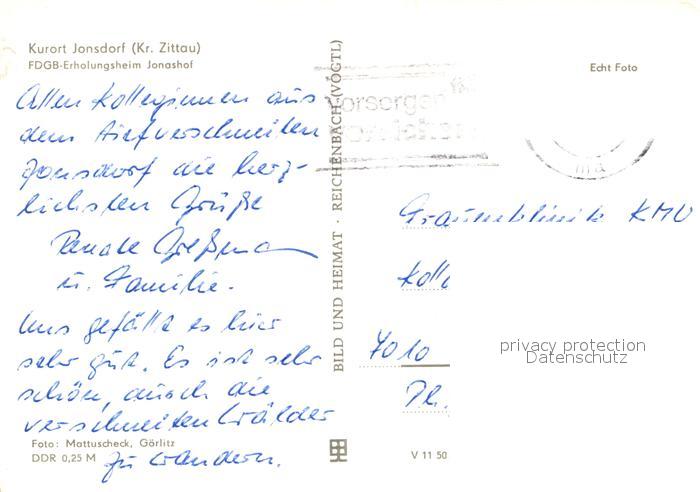 Kurort Jonsdorf (Kr. Zittau)
FDGB-Erholungsheim Jonashof
Allen Kolleginnen aus
dem tiefverschneiten
Jonsdorf die herz-
lichsten Grüße
Renate Greßmann
u. Familie.
Uns gefällt es hier
sehr gut. Es ist sehr
schön, durch die
verschneiten Wälder
zu wandern.
Foto: Mattuscheck, Görlitz
DDR 0,25 M
BILD UND HEIMAT · REICHENBACH (VOGTL)
Echt Foto
vorsorgen
Frauenklinik KMU
Koll
7010
V 11 50
privacy protection
Datenschutz